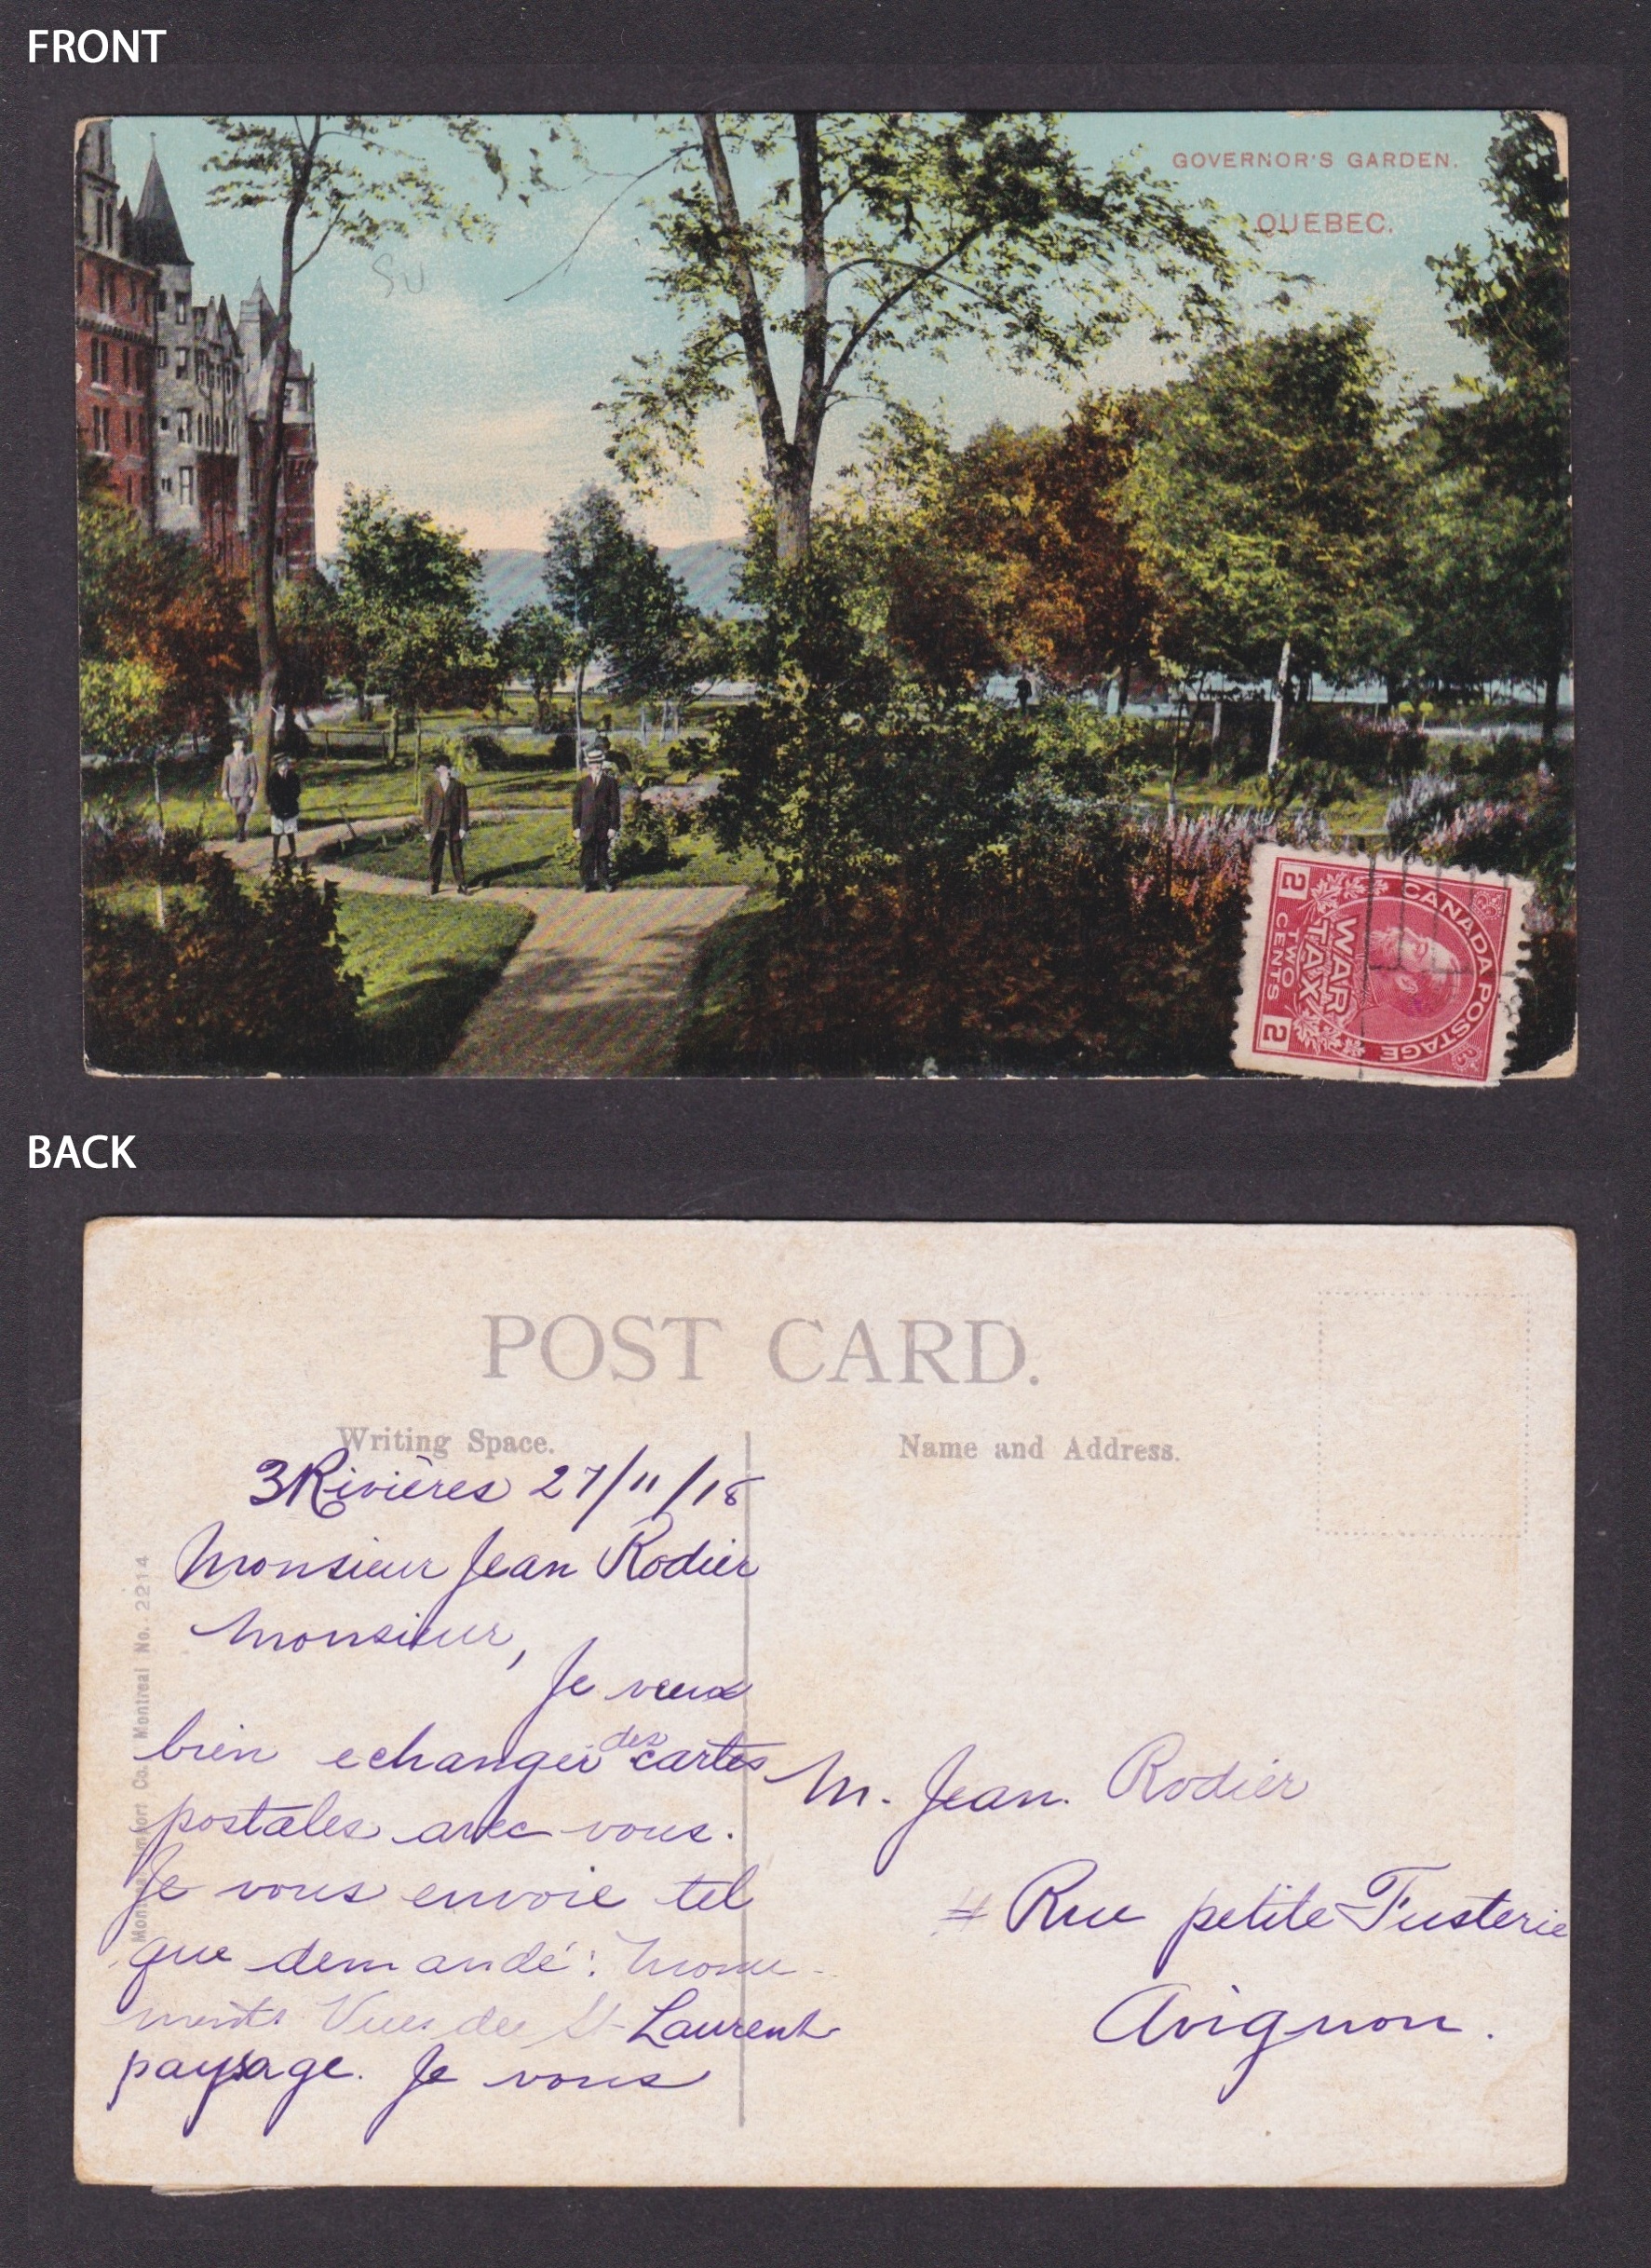 FRONT
GOVERNOR'S GARDEN.
QUEBEC.
SU
CANADA POSTAGE
WAR
TAX
TWO
CENTS
2 2
BACK
POST CARD.
Writing Space.
Name and Address.
3 Rivières 27/11/18
Monsieur Jean Rodier
Monsieur,
Je veux
bien echanger des cartes
postales avec vous.
Je vous envoie tel
que demandé: Monu-
ments Vues du St-Laurent
paysage. Je vous
M. Jean. Rodier
Rue petite Fusterie
Avignon.
Import Co. Montreal No. 2214